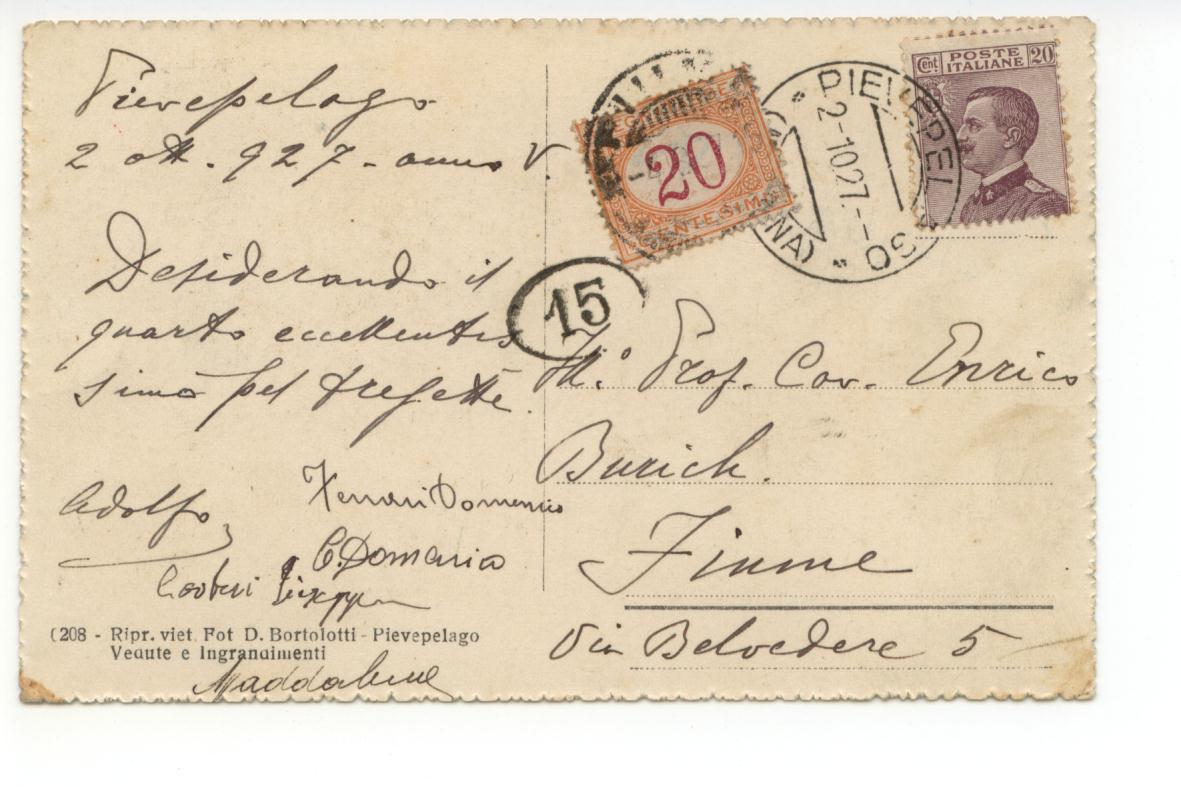 Pievepelago
2 ott. 927 - anno V.
Desiderando il
quarto eccellentis
simo pel tressette.
Adolfo
Ferrari Domenico
C. Domenico
Maddalena
(208 - Ripr. viet. Fot D. Bortolotti - Pievepelago
Vedute e Ingrandimenti
20
CENTESIMI
15
* PIEVEPELAGO *
2-10 27.--
NA)
POSTE
ITALIANE
Cent
20
Ill.º Prof. Cav. Enrico
Burich.
Fiume
Via Belvedere 5